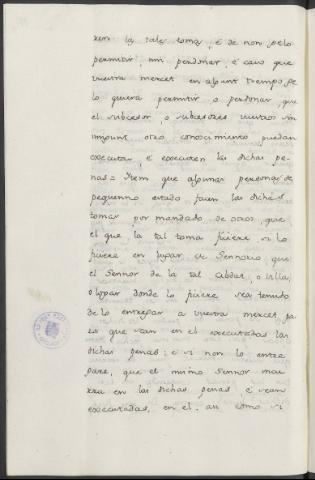 xen la tale toma, é de non selo
permitir, nin perdonar, é caso que
vuestra merced en algunt tiempo se
lo quiera permitir o perdonar, que
el subcesor, o subcesores vuestros sin
ningunt otro conoscimiento puedan
executar, é executen las dichas pe-
nas = Item que algunas personas de
pequenno estado facen las dichas
tomas por mandado de otros, que
el que la tal toma ficiere si lo
ficiere en lugar de Sennorio, que
el Sennor de la tal Cibdat, o Villa,
o logar donde lo ficiere sea tenudo
de lo entregar a vuestra merced, pa
ra que sean en el executadas las
dichas penas: e si non lo entre
gare, que el mismo Sennor incu
rra en las dichas penas, é sean
executadas, en el, asi como si